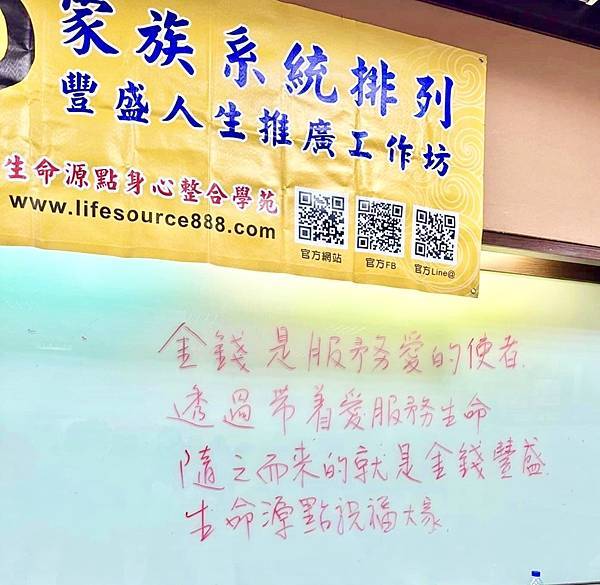 家族系統排列
豐盛人生推廣工作坊
生命源點身心整合學苑
www.lifesource888.com
官方網站
官方FB
官方Line@
金錢是服务愛的使者
透過带着愛服務生命
隨之而来的就是金錢豐盛
生命源點祝福大家